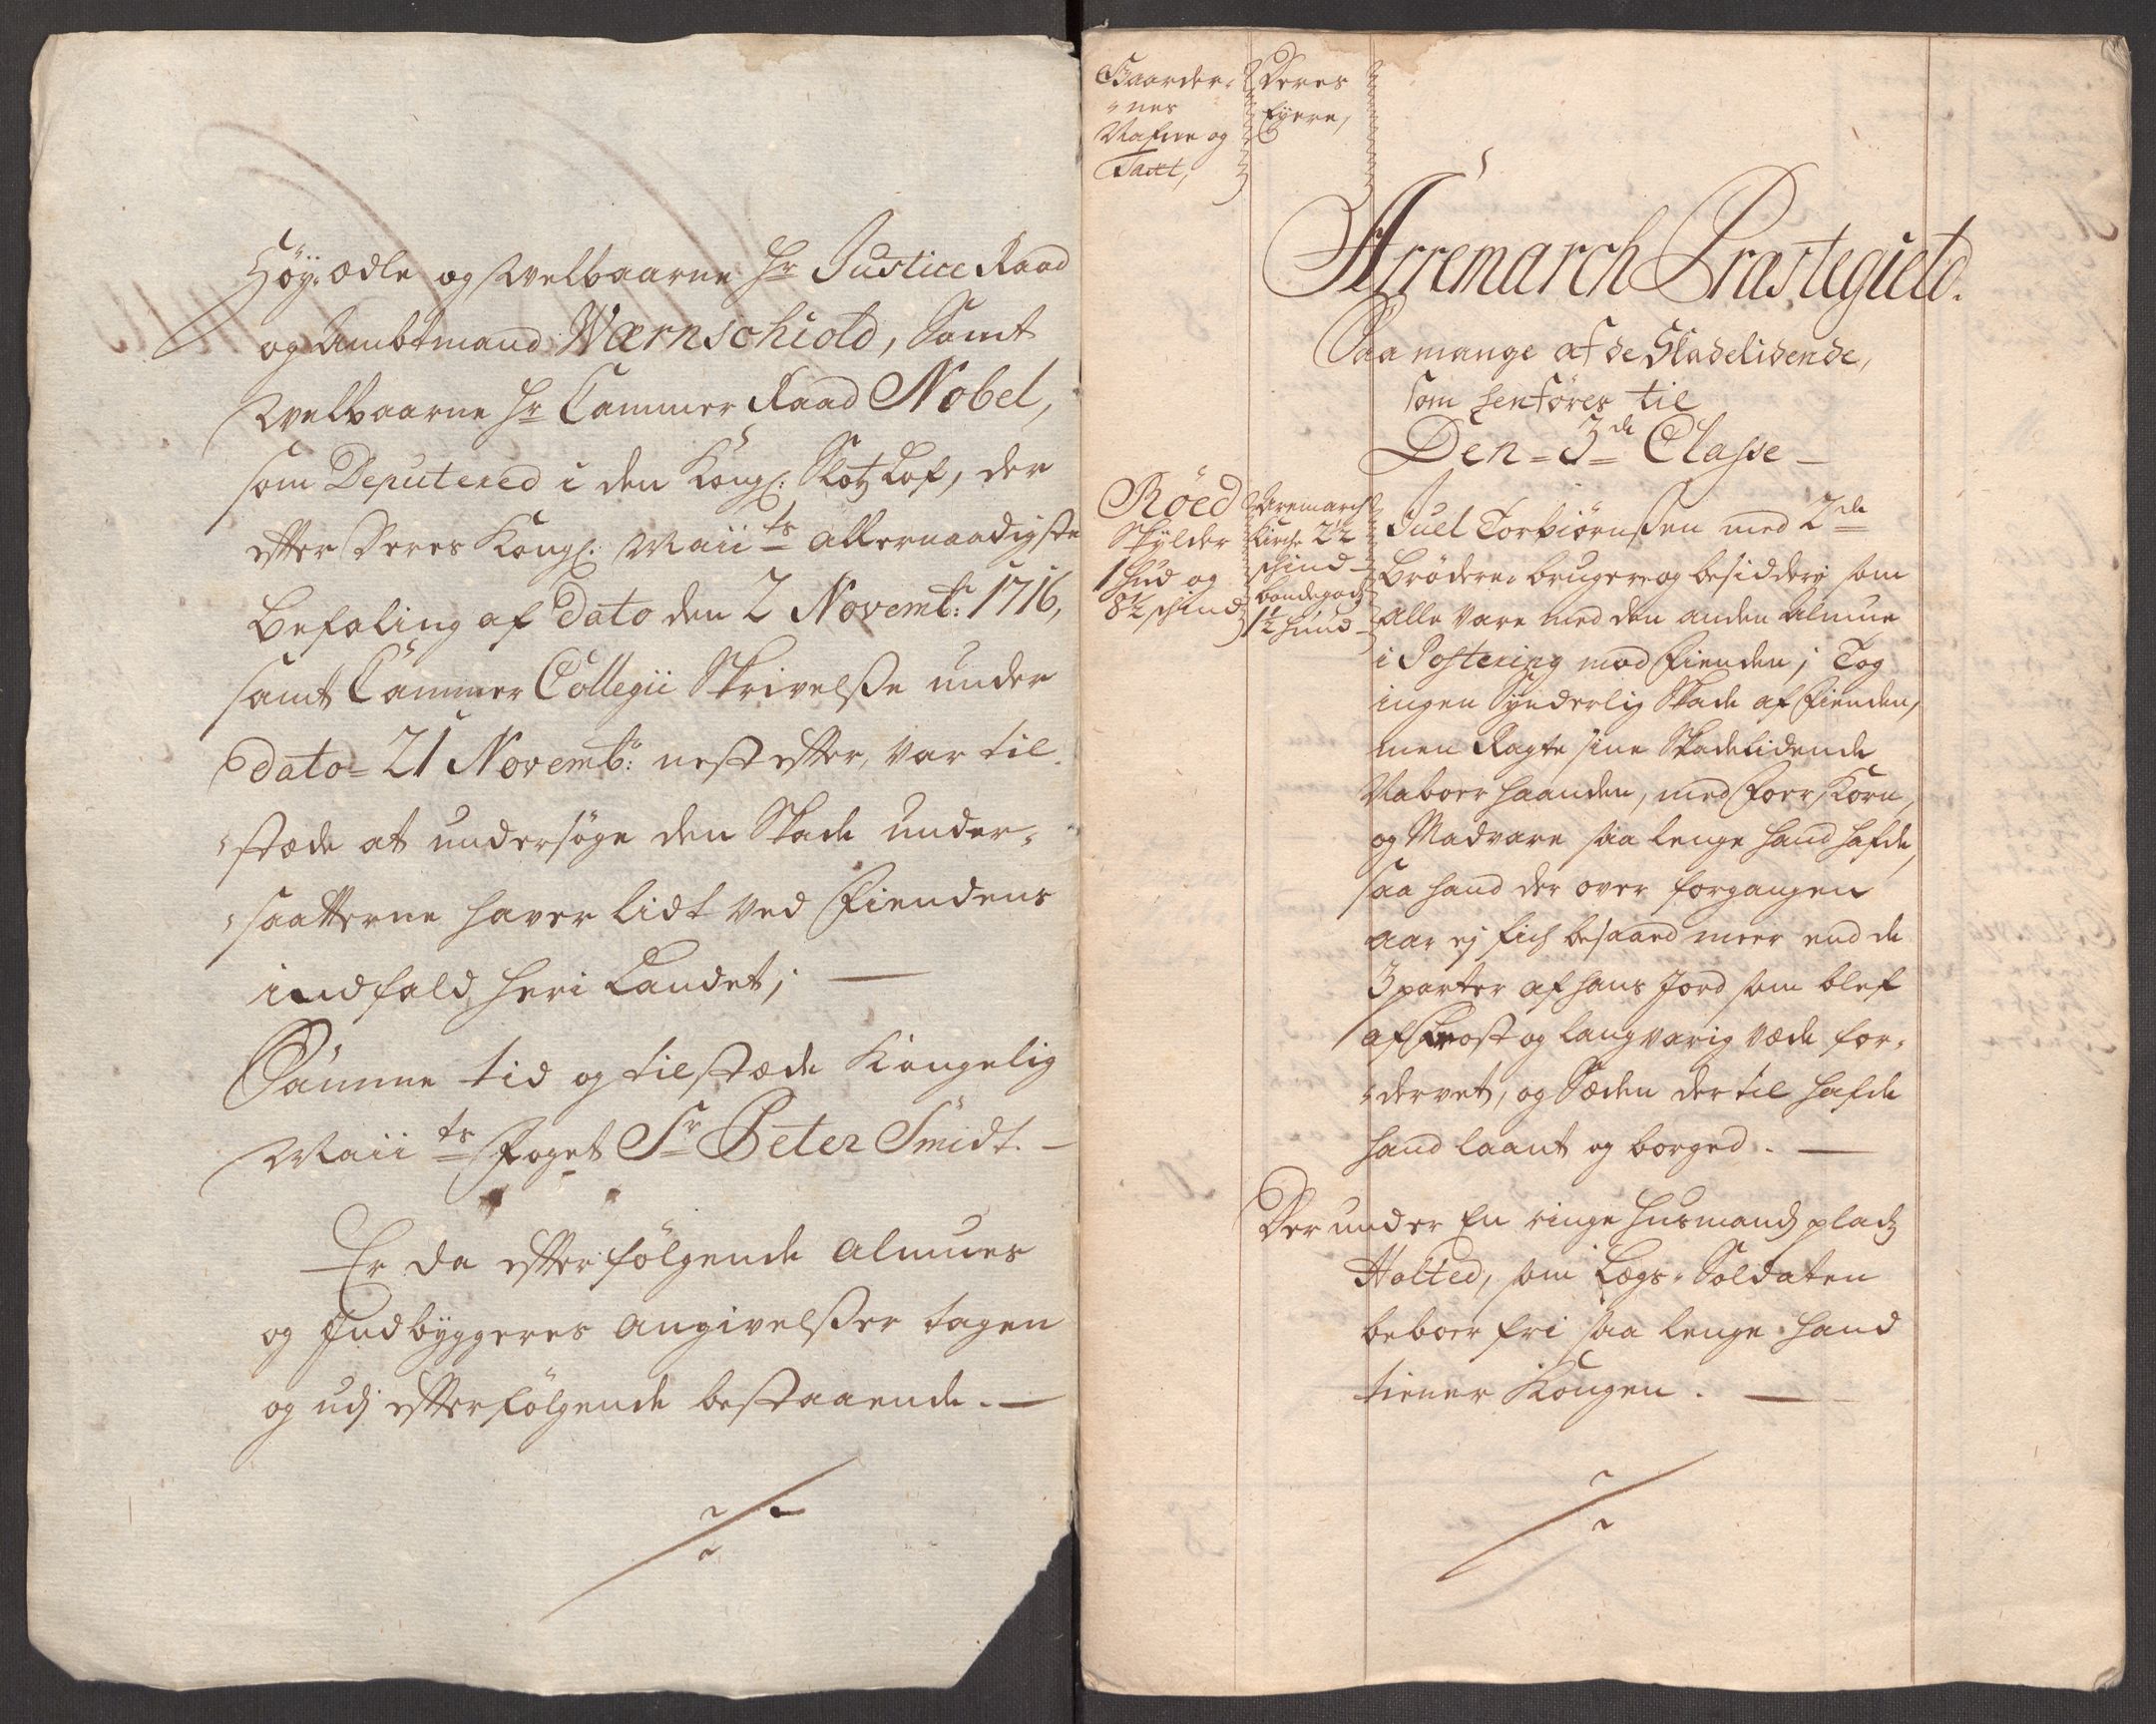 Høy-ædle og Welbaarne Hr Justice Raad
og Ambtmand Wærnschiold, Samt
Welbaarne Hr Cammer Raad Nobel,
som Deputered i den Kongl: Slotz Lof, der
effter Deres Kongl: Maiits allernaadigste
Befaling af Dato den 2 Novembr: 1716,
samt Cammer Collegii Skrivelsse under
dato 21 Novembr: nest effter, var til
stæde at undersøge den Skade under-
saatterne haver lidt ved Fiendens
indfald her i Landet;
Samme tid og tilstæde Kongelig
Maiits Foget Sr Peter Smidt.
Er da effterfølgende Almues
og Indbyggeres angivelsser tagen
og udj effterfølgende bestaaende.
Gaarder-
nes
Nafne og
Taxt,
Deres
Eyere,
Arremarch Præstegield.
Saa mange af de Skadelidende,
som henføres til
Den 3de Classe
Røed
Skylder
1 Hud og
8½ skind
Aremarch
Kirche 2½
skind
bondegodz
1½ huud
Juel Torbiørnssen med 2de
Brødere bruger og besidder, som
alle vare med den anden Almue
i Postering mod Fienden; Tog
ingen Synderlig Skade af Fienden,
men Ragte sine Skadelidende
Naboer haanden, med Foer Korn,
og Madvare saa lenge hand hafde,
saa hand der over forgangen
aar ej fich besaaed meer end de
3 parter af hans Jord som blef
af Frost og langvarig væde for-
dervet, og Sæden der til hafde
hand laant og borged.
Der under En ringe Husmandz pladz
Holted, som Legs-Soldaten
beboer fri saa lenge hand
tiener Kongen.